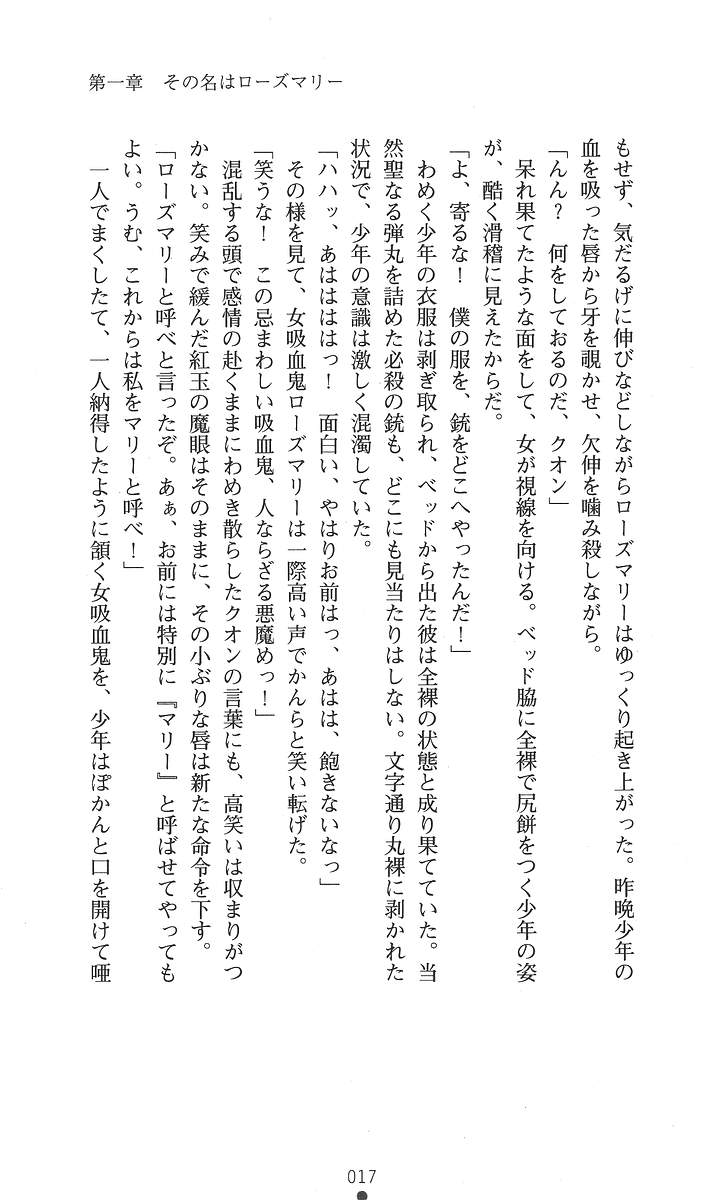 第一章　その名はローズマリー
もせず、気だるげに伸びなどしながらローズマリーはゆっくり起き上がった。昨晩少年の
血を吸った唇から牙を覗かせ、欠伸を噛み殺しながら。
「んん？　何をしておるのだ、クオン」
　呆れ果てたような面をして、女が視線を向ける。ベッド脇に全裸で尻餅をつく少年の姿
が、酷く滑稽に見えたからだ。
「よ、寄るな！　僕の服を、銃をどこへやったんだ！」
　わめく少年の衣服は剥ぎ取られ、ベッドから出た彼は全裸の状態と成り果てていた。当
然聖なる弾丸を詰めた必殺の銃も、どこにも見当たりはしない。文字通り丸裸に剥かれた
状況で、少年の意識は激しく混濁していた。
「ハハッ、あはははっ！　面白い、やはりお前はっ、あはは、飽きないなっ」
　その様を見て、女吸血鬼ローズマリーは一際高い声でかんらと笑い転げた。
「笑うな！　この忌まわしい吸血鬼、人ならざる悪魔めっ！」
　混乱する頭で感情の赴くままにわめき散らしたクオンの言葉にも、高笑いは収まりがつ
かない。笑みで緩んだ紅玉の魔眼はそのままに、その小ぶりな唇は新たな命令を下す。
「ローズマリーと呼べと言ったぞ。あぁ、お前には特別に『マリー』と呼ばせてやっても
よい。うむ、これからは私をマリーと呼べ！」
　一人でまくしたて、一人納得したように頷く女吸血鬼を、少年はぽかんと口を開けて唖
017